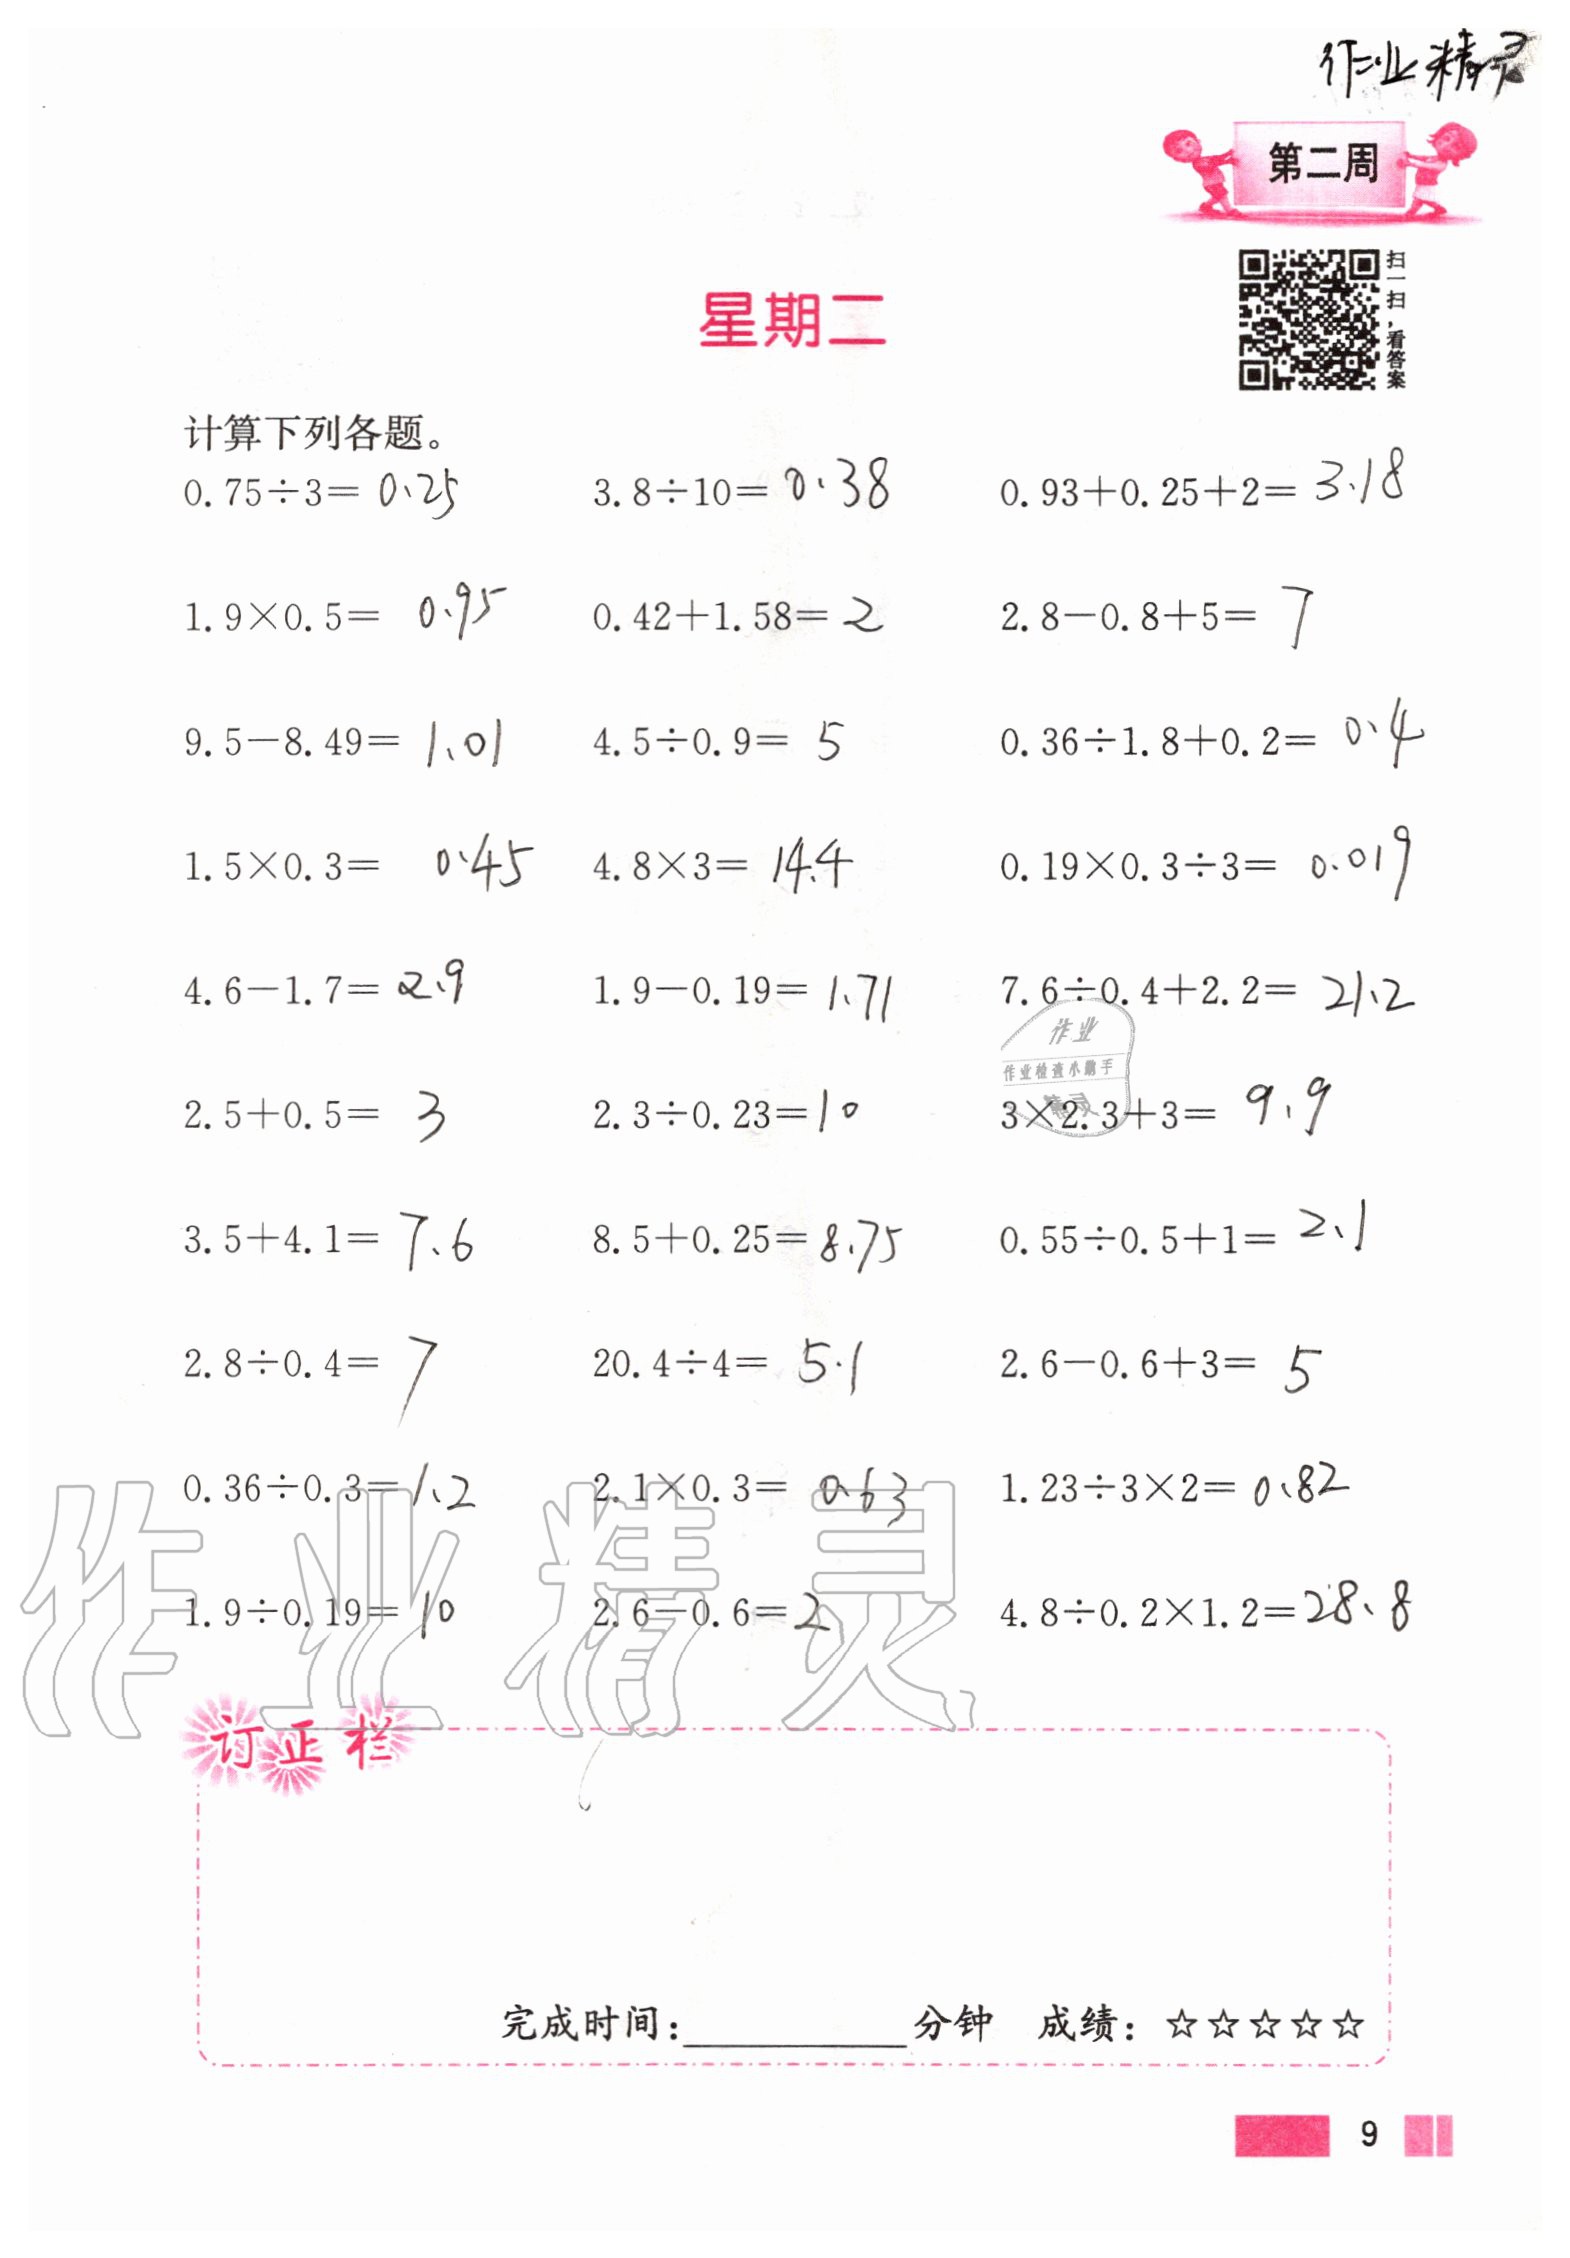 作业精灵
第二周
扫一扫，看答案
星期二
计算下列各题。
0.75÷3= 0.25 3.8÷10= 0.38 0.93+0.25+2= 3.18
1.9×0.5= 0.95 0.42+1.58= 2 2.8-0.8+5= 7
9.5-8.49= 1.01 4.5÷0.9= 5 0.36÷1.8+0.2= 0.4
1.5×0.3= 0.45 4.8×3= 14.4 0.19×0.3÷3= 0.019
4.6-1.7= 2.9 1.9-0.19= 1.71 7.6÷0.4+2.2= 21.2
作业
作业检查小助手
精灵
2.5+0.5= 3 2.3÷0.23= 10 3×2.3+3= 9.9
3.5+4.1= 7.6 8.5+0.25= 8.75 0.55÷0.5+1= 2.1
2.8÷0.4= 7 20.4÷4= 5.1 2.6-0.6+3= 5
0.36÷0.3= 1.2 2.1×0.3= 0.63 1.23÷3×2= 0.82
作业精灵
1.9÷0.19= 10 2.6-0.6= 2 4.8÷0.2×1.2= 28.8
订正栏
完成时间:________分钟 成绩: ☆☆☆☆☆
9